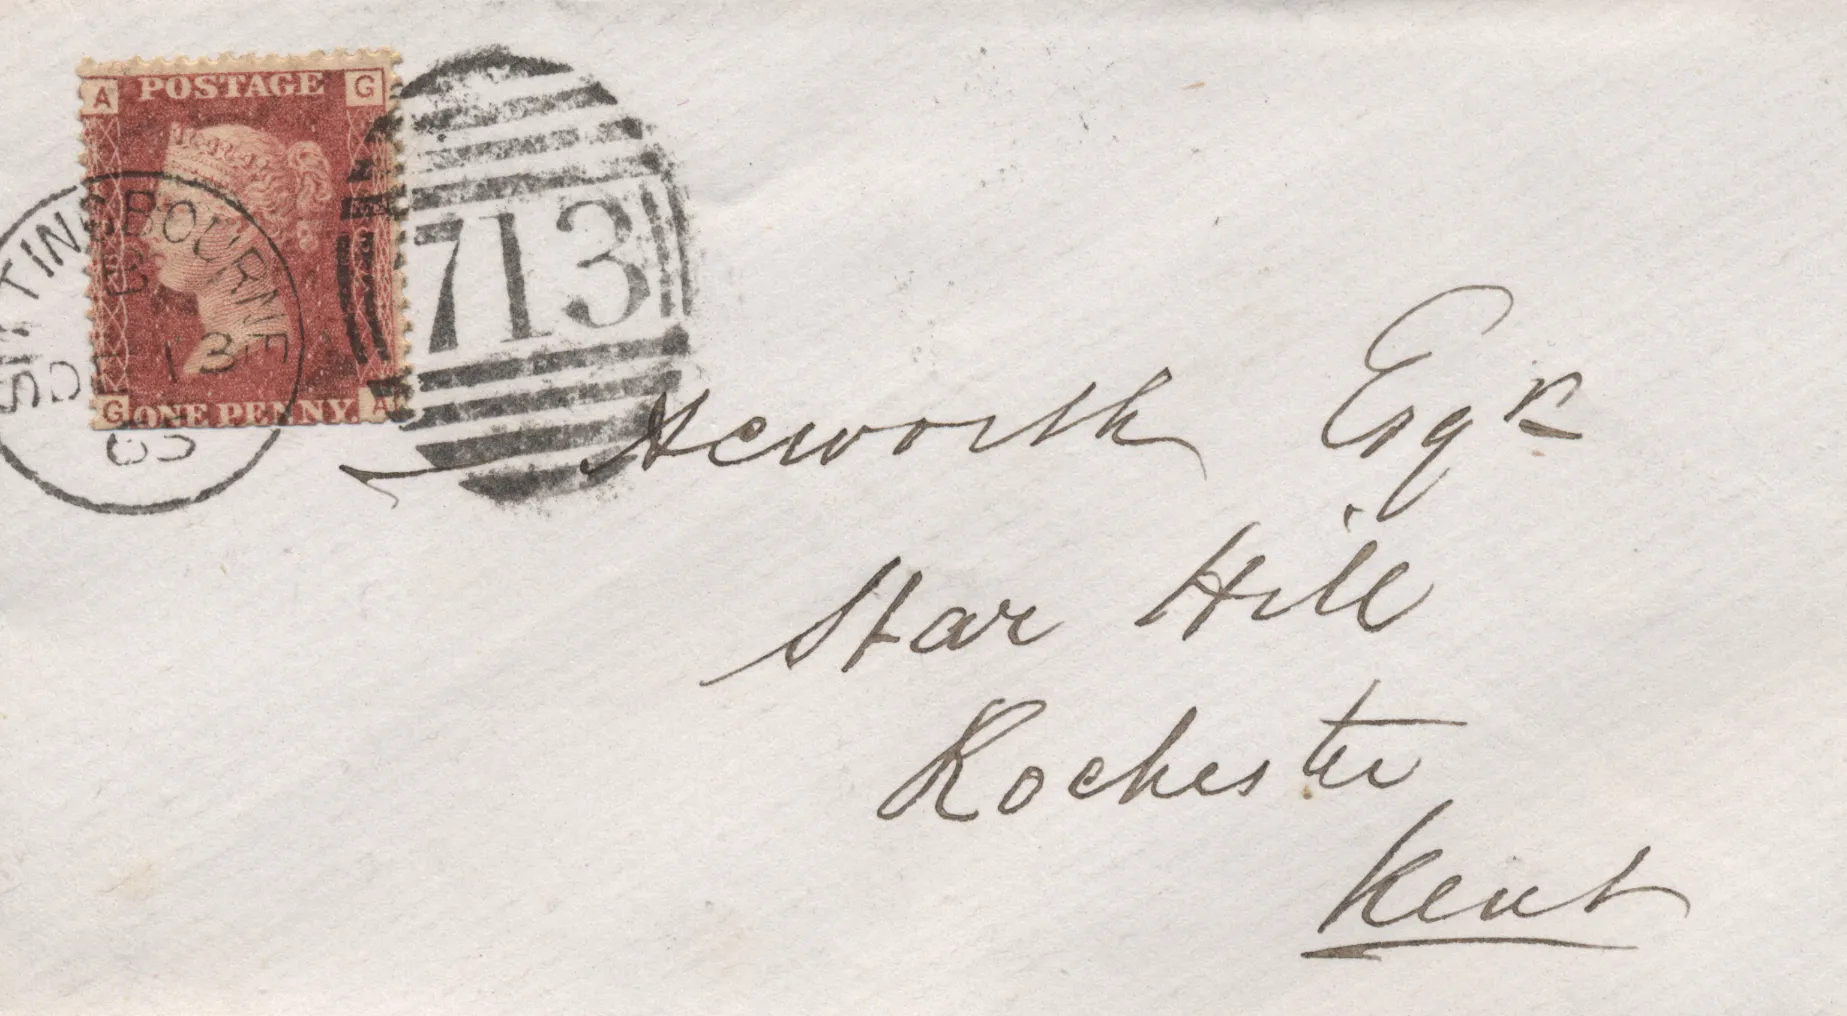 A POSTAGE G
G ONE PENNY. A
SITTINGBOURNE
B
OC 13
713
Acworth Esqr
Star Hill
Rochester
Kent